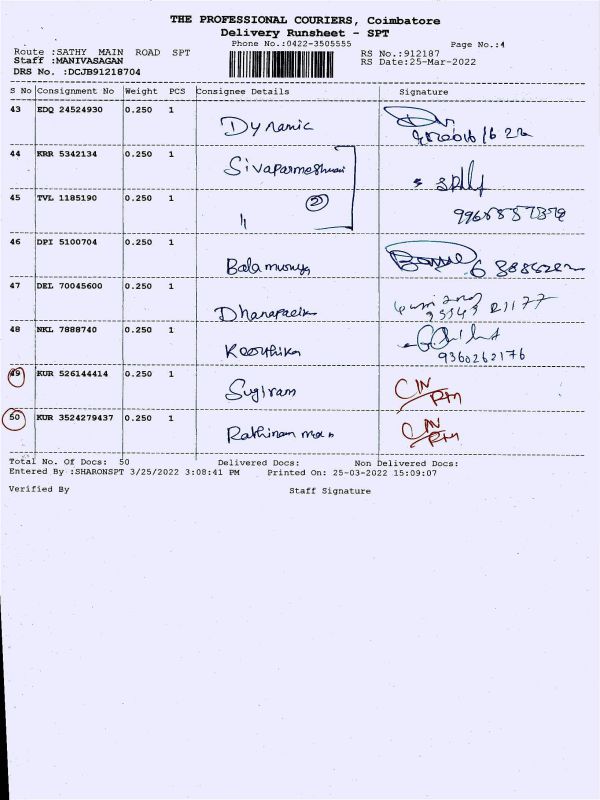 THE PROFESSIONAL COURIERS, Coimbatore
Delivery Runsheet - SPT
Phone No.:0422-3505555 Page No.:4
Route :SATHY MAIN ROAD SPT RS No.:912187
Staff :MANIVASAGAN RS Date:25-Mar-2022
DRS No. :DCJB91218704
S No Consignment No Weight PCS Consignee Details Signature
43 EDQ 24524930 0.250 1 Dynamic
44 KRR 5342134 0.250 1 Sivaparmeshwari
45 TVL 1185190 0.250 1 〃 (2)
46 DPI 5100704 0.250 1
47 DEL 70045600 0.250 1
48 NKL 7888740 0.250 1 Keerthika
9360262176
49 KUR 526144414 0.250 1 Sugiram CIN/RTN
50 KUR 3524279437 0.250 1 CIN/RTN
Total No. Of Docs: 50 Delivered Docs: Non Delivered Docs:
Entered By :SHARONSPT 3/25/2022 3:08:41 PM Printed On: 25-03-2022 15:09:07
Verified By Staff Signature